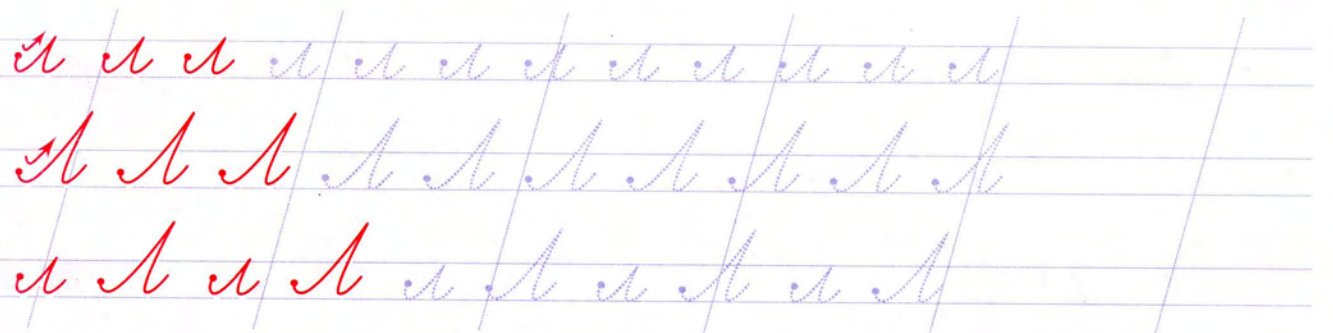 л л л л л л л л л л л л
Л Л Л Л Л Л Л Л Л Л
л Л л Л л Л л Л л Л